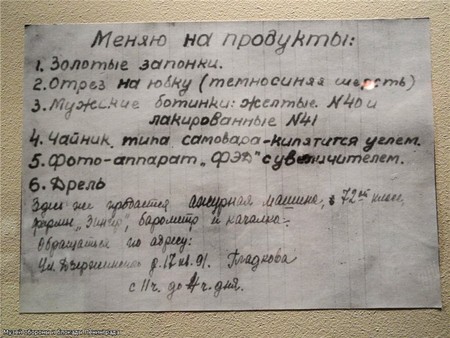 Меняю на продукты:
1. Золотые запонки.
2. Отрез на юбку (темносиняя шерсть)
3. Мужские ботинки: желтые №40 и
лакированные №41
4. Чайник типа самовара - кипятится углем.
5. Фото-аппарат „ФЭД" с увеличителем.
6. Дрель
Здесь же продается ажурная машина, 72ой класс,
фирмы „Зингер", барометр и качалка.
Обращаться по адресу:
Ул. Дзержинского д. 17 кв. 91. Гладкова
с 11 ч. до 4 ч. дня.
Музей обороны и блокады Ленинграда